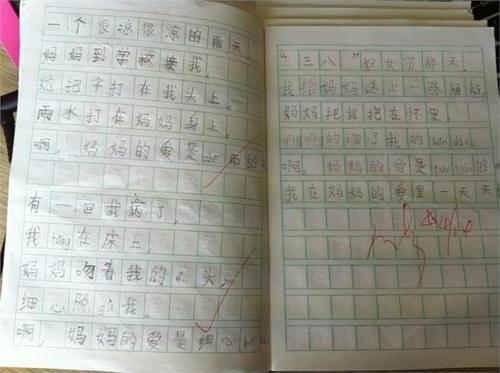 一个很凉很凉的雨天，
妈妈到学校接我，
她把伞打在我头上，
雨水打在妈妈身上。
啊，妈妈的爱是 雨的
有一回我病了，
我tǎng在床上，
妈妈吻着我的 头，
细心照gù我。
啊，妈妈的爱是细心
“三八”妇女节那天，
我给妈妈送上一张
妈妈把我抱在怀里，
qīngqīng的吻了我的
啊，妈妈的爱是tián tián的
我在妈妈的爱里一天天